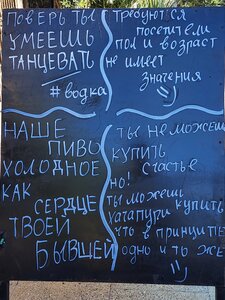 ПОВЕРЬ ТЫ
УМЕЕШЬ
ТАНЦЕВАТЬ
#водка
Требуются
посетители
пол и возраст
не имеет
значения
НАШЕ
ПИВО
ХОЛОДНОЕ
КАК
СЕРДЦЕ
ТВОЕЙ
БЫВШЕЙ
ты не можешь
купить
счастье
но!
ты можешь
хачапури купить
что в принципе
одно и то же